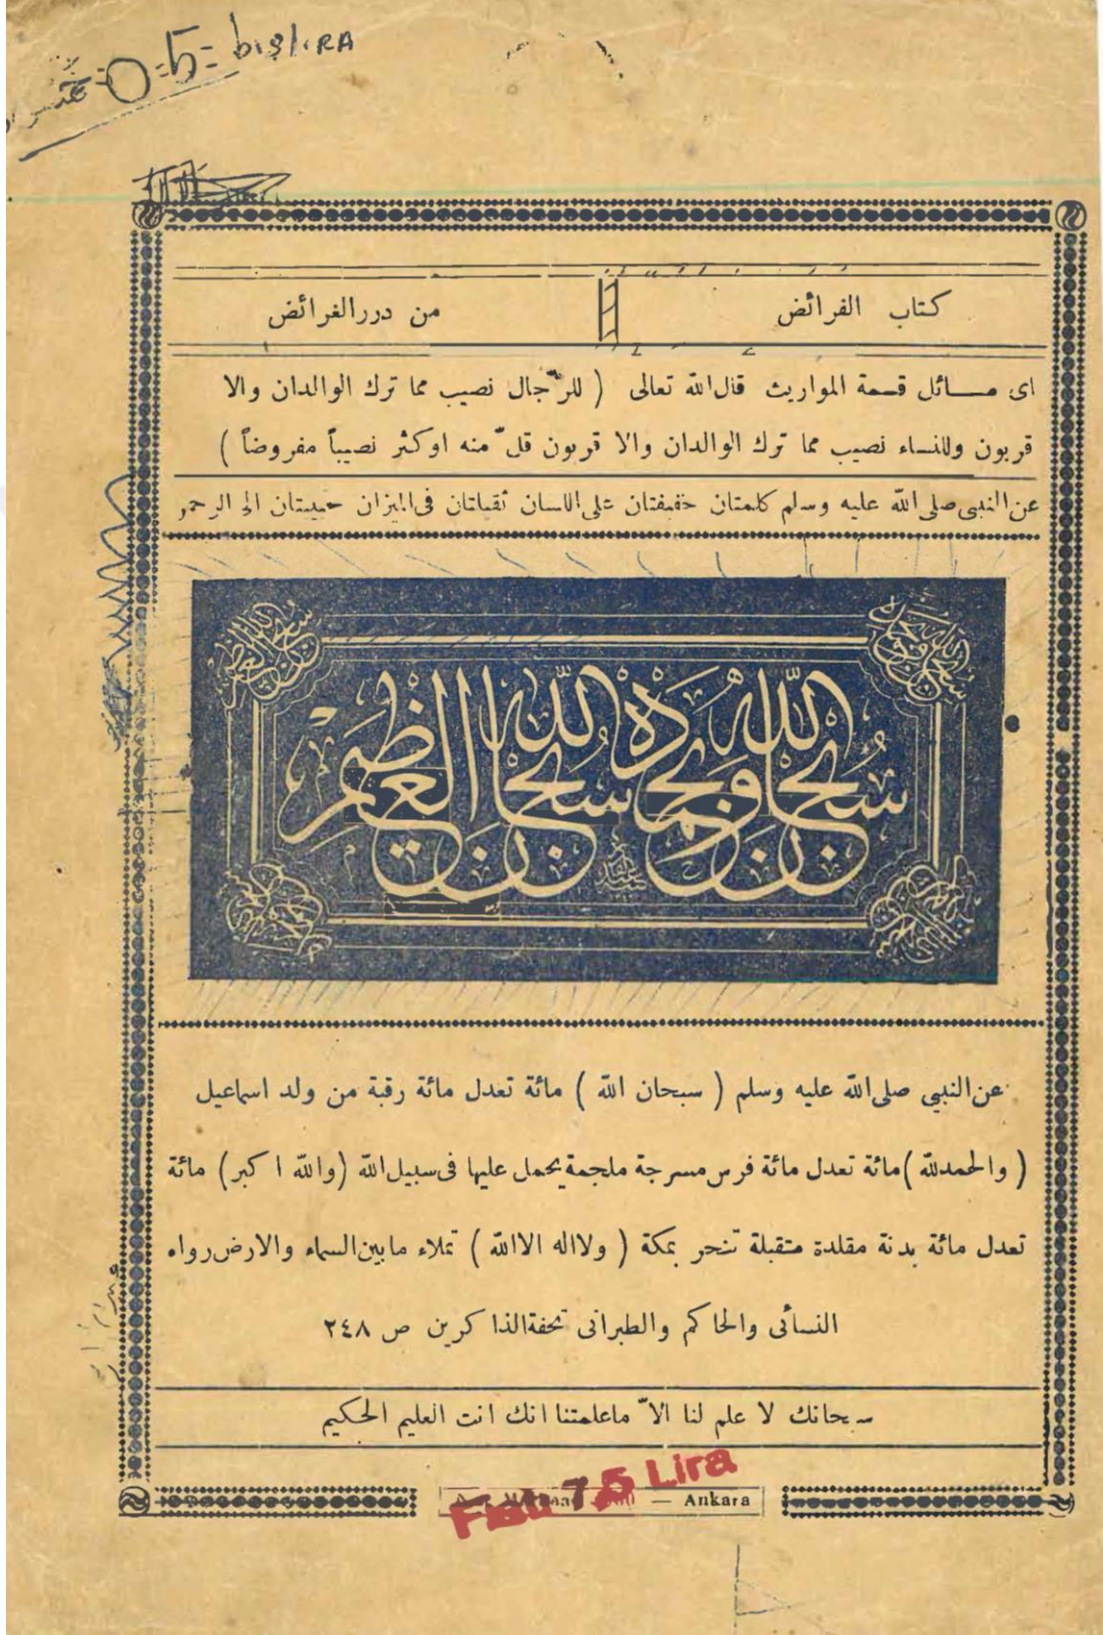 -5- bişlira
كتاب الفرائض
من دررالغرائض
اى مسائل قسمة المواريث قال‌الله تعالى ( للرّجال نصيب مما ترك الوالدان والا
قربون وللنساء نصيب مما ترك الوالدان والا قربون قلّ منه اوكثر نصيباً مفروضاً )
عن النبى صلى الله عليه وسلم كلمتان خفيفتان على اللسان ثقيلتان فى الميزان حبيبتان الى الرحمن
سبحان الله وبحمده سبحان الله العظيم
عن النبي صلى الله عليه وسلم ( سبحان الله ) مائة تعدل مائة رقبة من ولد اسماعيل
( والحمدلله ) مائة تعدل مائة فرس مسرجة ملجمة يحمل عليها فى سبيل الله (والله اكبر) مائة
تعدل مائة بدنة مقلدة متقبلة تنحر بمكة ( ولااله الاالله ) تملاء مابين السماء والارض رواه
النسائى والحاكم والطبرانى تحفة الذاكرين ص ٢٤٨
سبحانك لا علم لنا الاّ ماعلمتنا انك انت العليم الحكيم
— Ankara
7,5 Lira